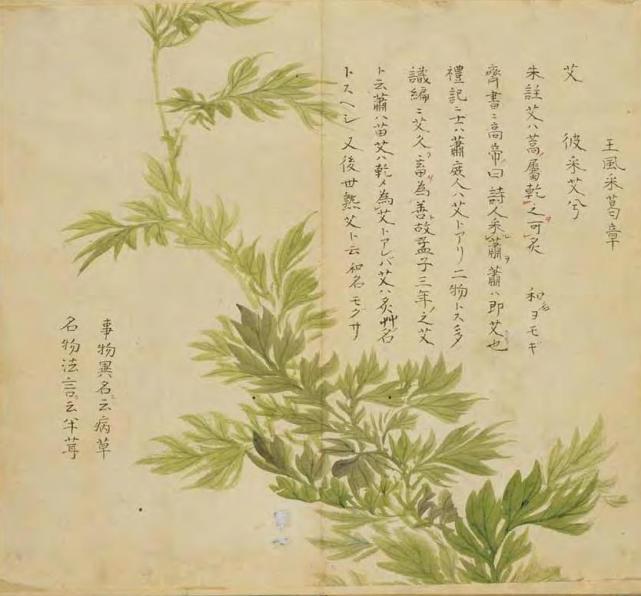 王風采葛章
艾 彼采艾兮
朱註艾ハ蒿屬乾之可灸 和名ヨモギ
齊書ニ高帝曰詩人采蕭蕭ハ即艾也
禮記ニ士ハ蕭庶人ハ艾トアリ二物トス多
識編ニ艾久ヲ畜為善故孟子三年之艾
ト云蕭ハ苗艾ハ乾メ為艾トアレバ艾ハ灸艸名
トスヘシ又後世熟艾ト云和名モグサ
事物異名ニ云病草
名物法言ニ云半茸